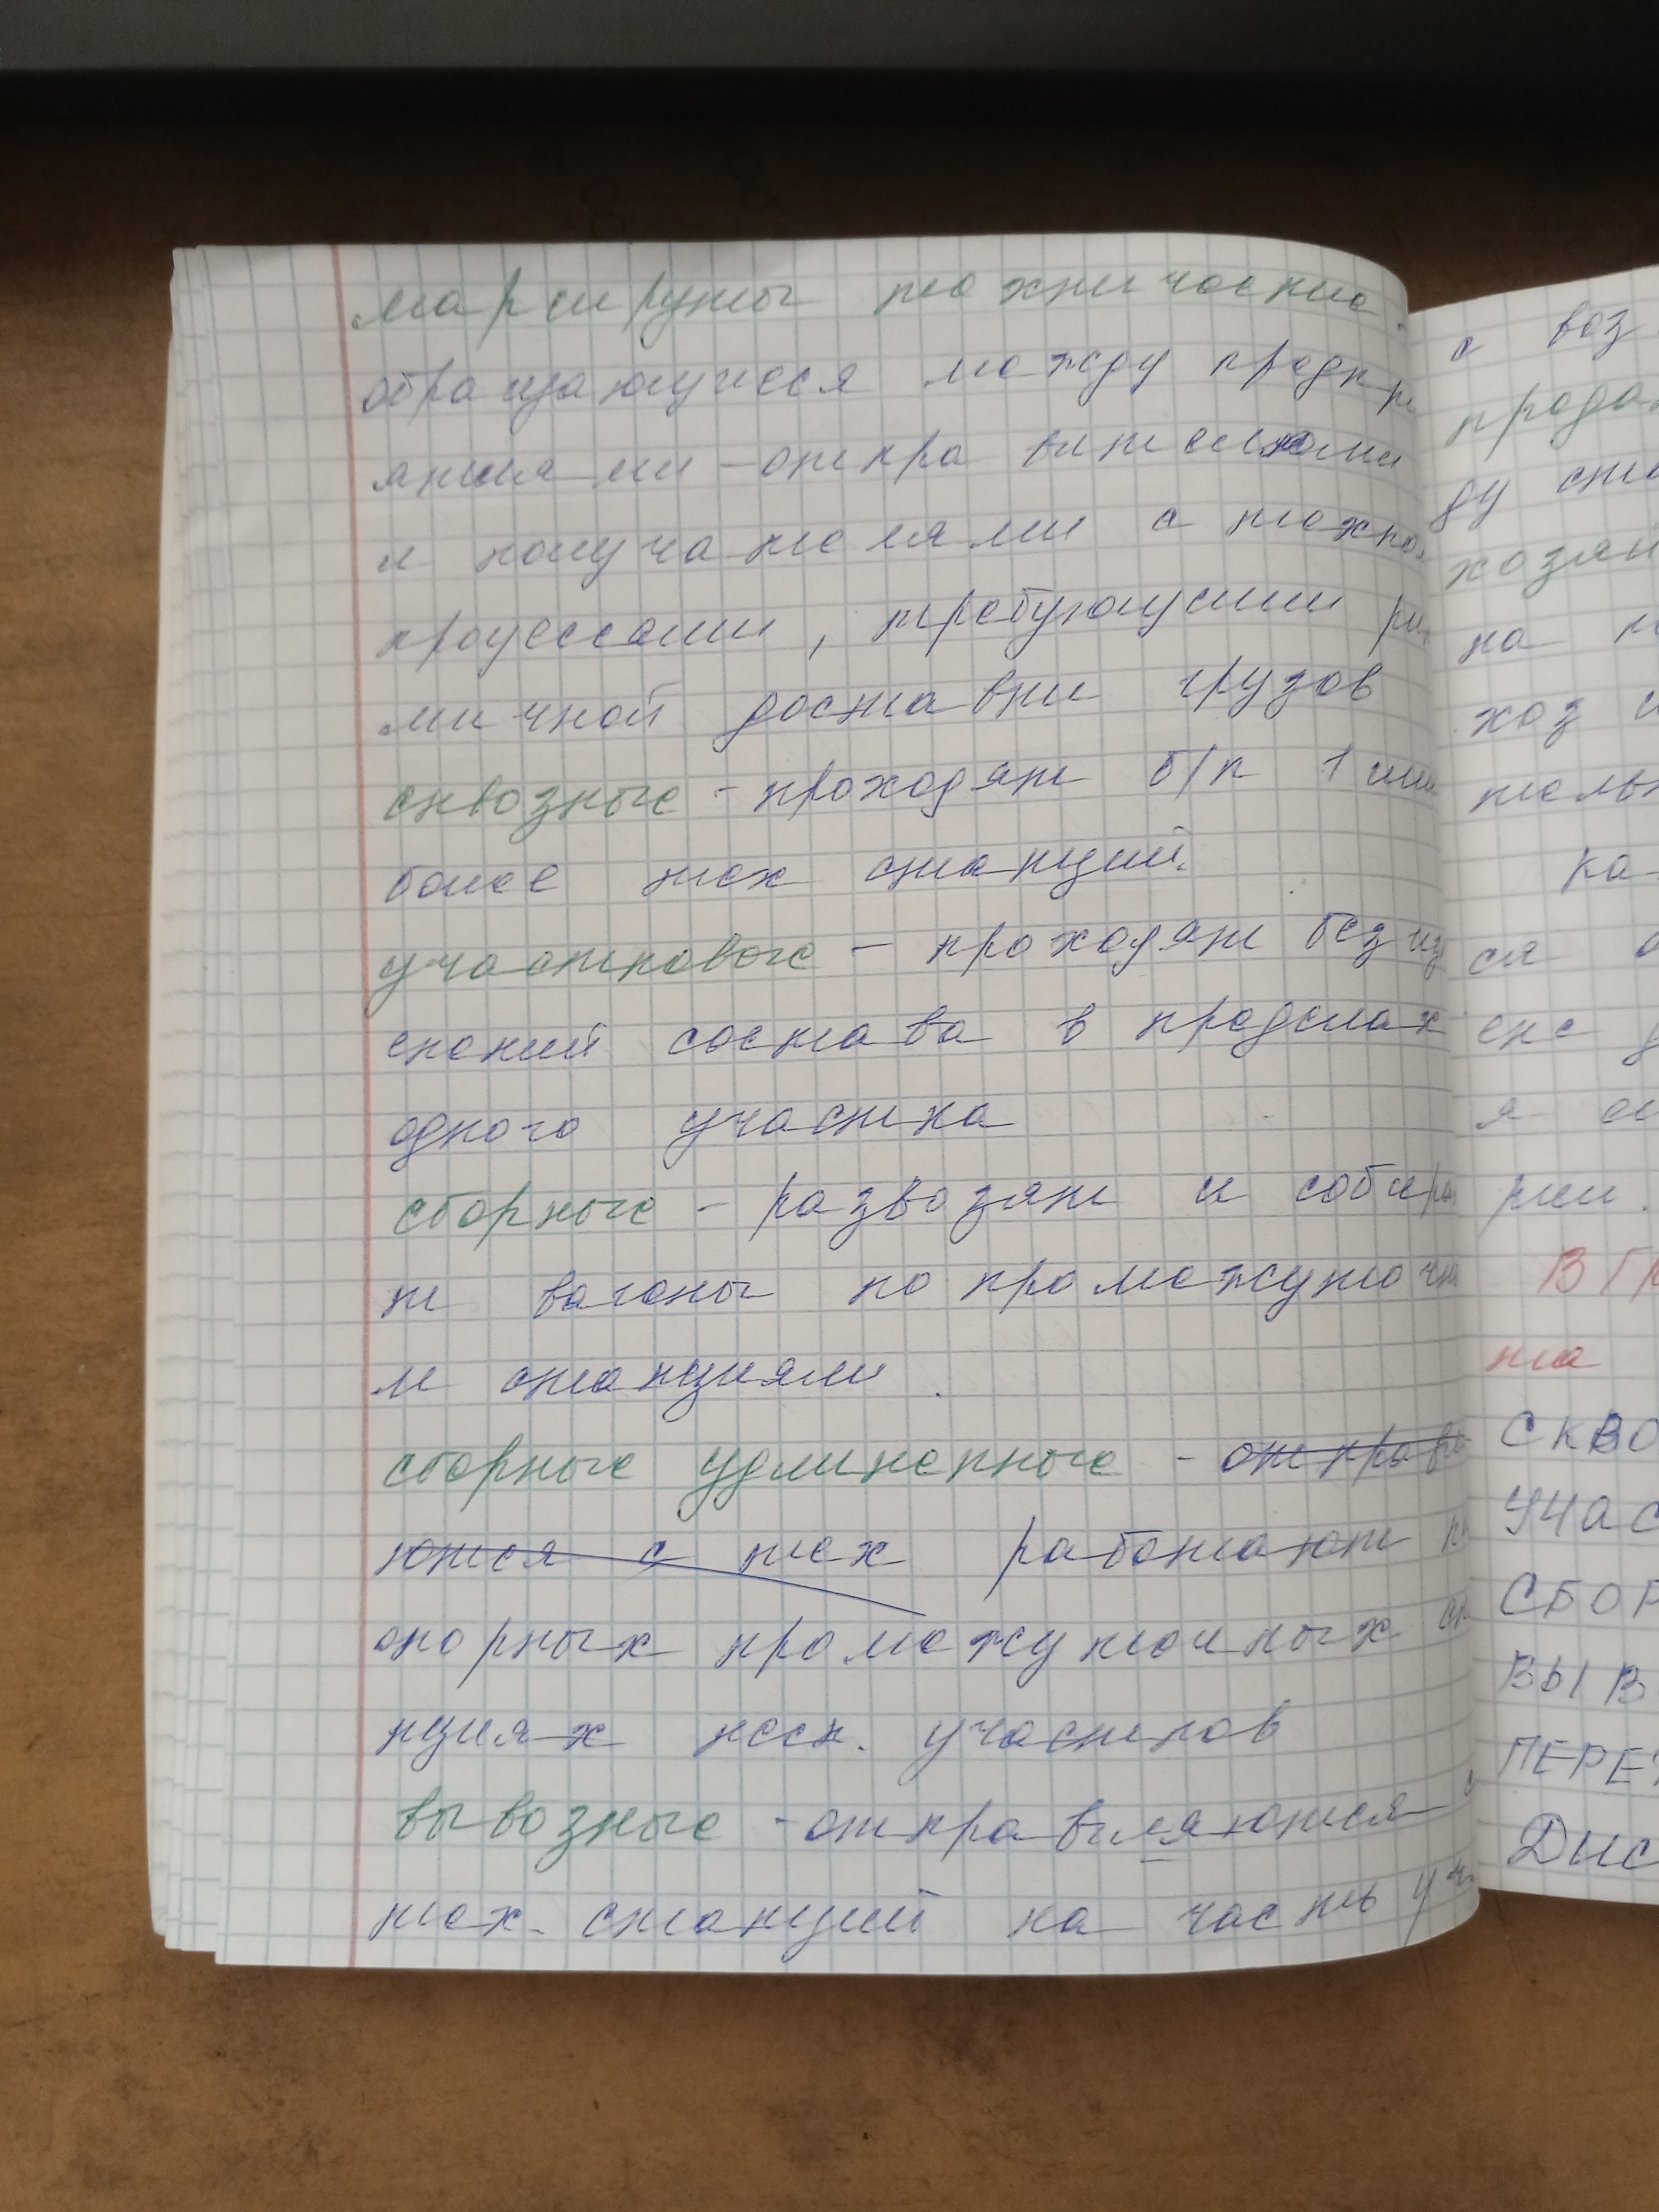 маршруты технические -
обращающиеся между предпри
ятиями - отправителями
и получателями с техно
процессами, требующими рит
мичной доставки грузов
сквозные - проходят б/п 1 или
более тех станций.
участковые - проходят без из
нений состава в пределах
одного участка
сборные - развозят и собира
т вагоны по промежуточны
м станциям.
сборные удлиненные - отправл
ются с тех работают на
опорных промежуточных ста
нциях неск. участков
вывозные - отправиляются с
тех. станций на часть уч
с воз
прода
ду ста
хозян
на
хоз
тель
ка
ся о
енс
я
рии.
В ГР
та
СКВО
УЧАС
СБОР
ВЫВ
ПЕРЕ
Дис